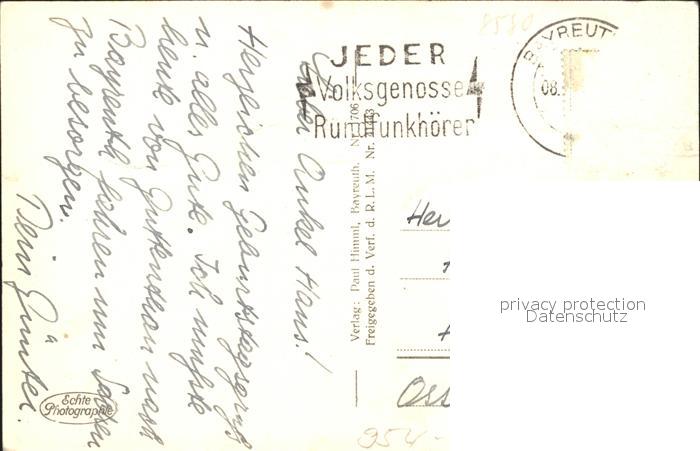 8580
JEDER
Volksgenosse
Rundfunkhörer
BAYREUT
08.
Lieber Onkel Hans!
Herzlichen Geburtstagsgruß
u. alles Gute. Ich mußte
heute von Guttenthau nach
Bayreuth fahren um Sachen
zu besorgen.
Dein Günter.
Echte
Photographie
Verlag: Paul Himml, Bayreuth. Nr. 706
Freigegeben d. Verf. d. R. L. M. Nr.
Her
Oss
954-
privacy protection
Datenschutz